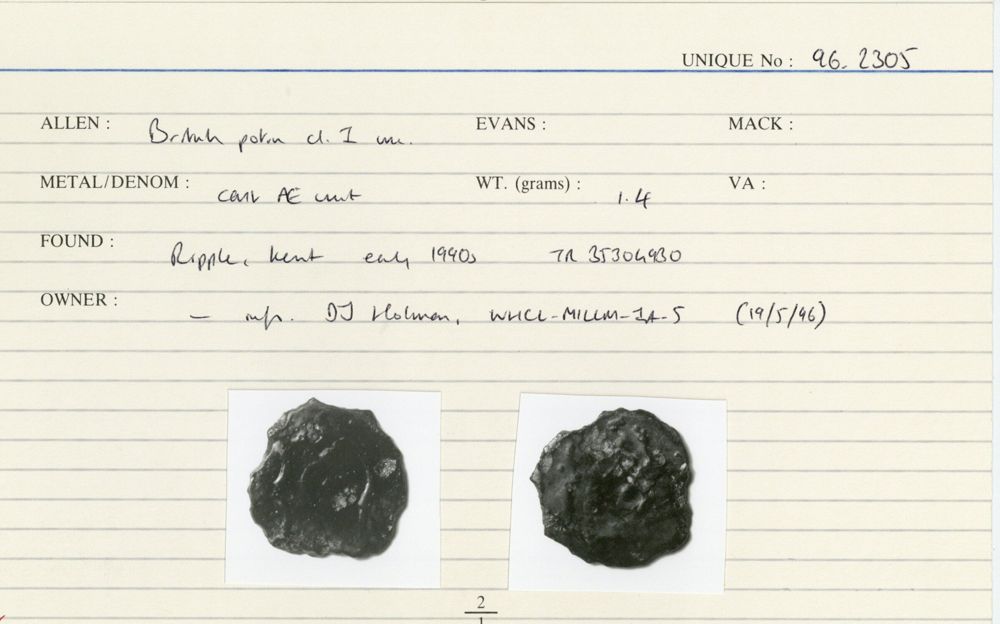 UNIQUE No : 96. 2305
ALLEN : British potin cl. I unc. EVANS : MACK :
METAL/DENOM : cast AE unit WT. (grams) : 1.4 VA :
FOUND : Ripple, Kent early 1990s TR 35304930
OWNER : — info. DJ Holman, WHCL-MILLM-IA-5 (19/5/96)
2
1